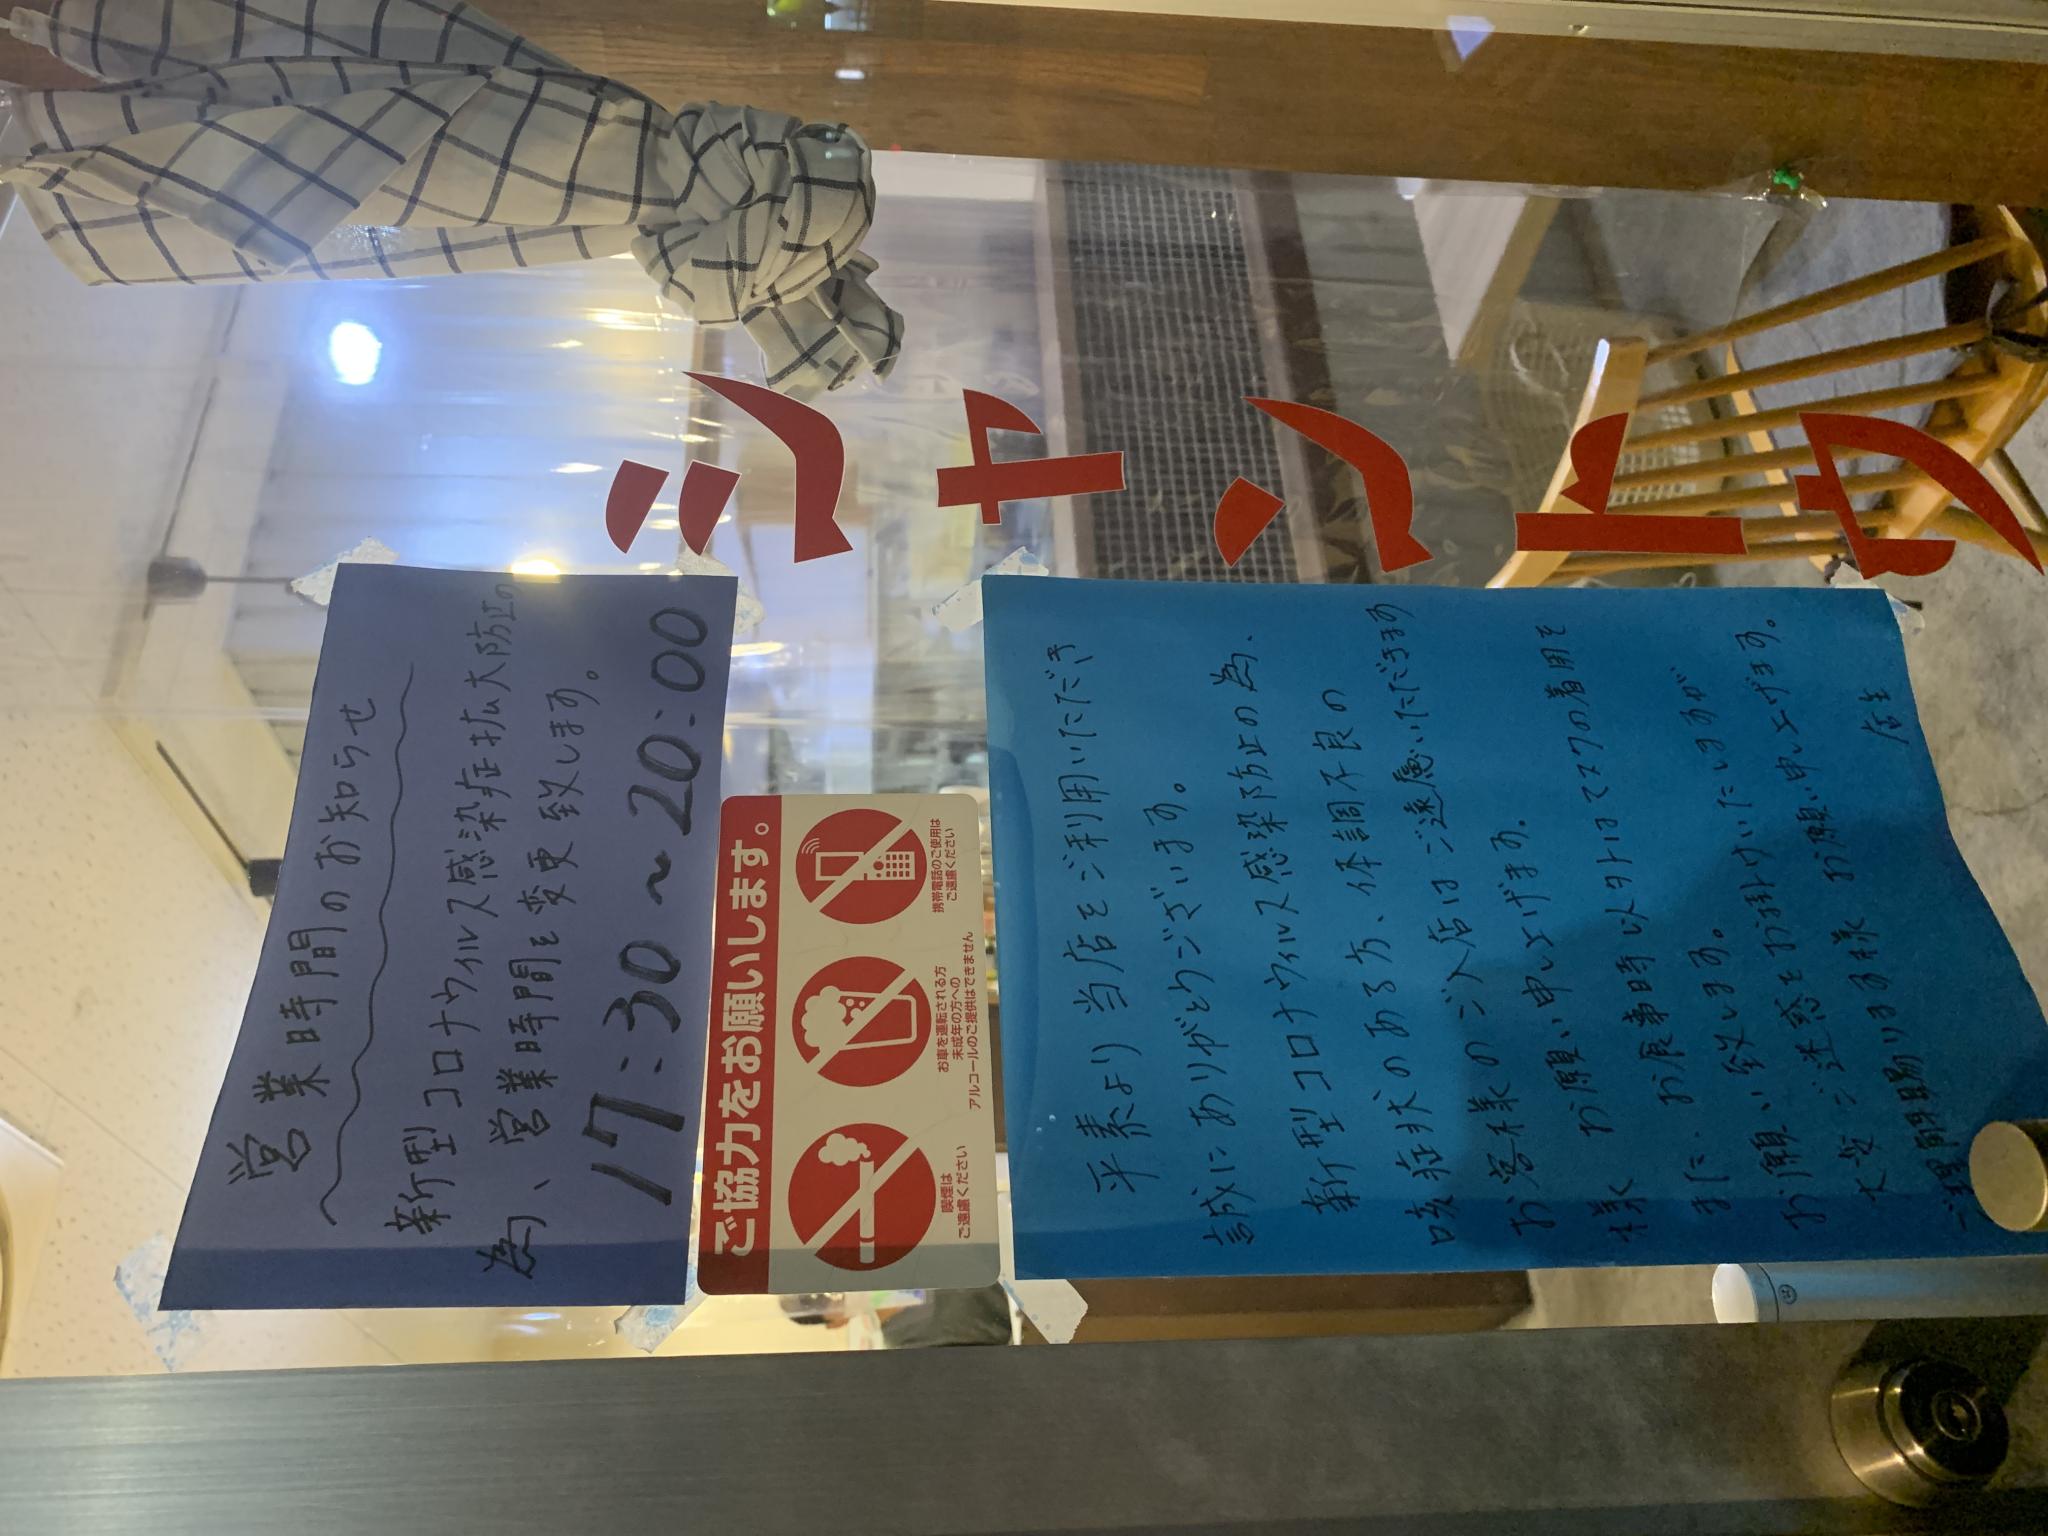 シャントウ
営業時間のお知らせ
新型コロナウィルス感染症拡大防止の
為、営業時間を変更致します。
17:30〜20:00
ご協力をお願いします。
喫煙は
ご遠慮ください
お車を運転される方
未成年の方への
アルコールのご提供はできません
携帯電話のご使用は
ご遠慮ください
平素より当店をご利用いただき
誠にありがとうございます。
新型コロナウィルス感染防止の為、
咳症状のある方、体調不良の
お客様のご入店はご遠慮いただきます
様お願い申し上げます。
また、お食事時以外はマスクの着用を
お願い致します。
大変ご迷惑をお掛けいたしますが
ご理解賜ります様お願い申し上げます。
店主